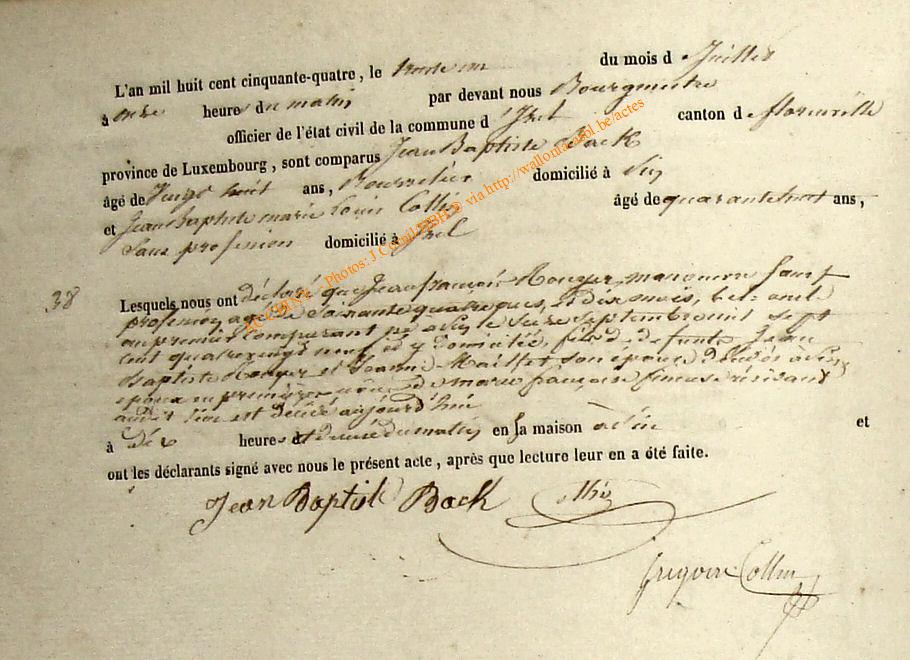 L'an mil huit cent cinquante-quatre, le trente un du mois d Juillet
à onze heure du matin par devant nous Bourgmestre
officier de l'état civil de la commune d'Izel canton de florenville
province de Luxembourg, sont comparus Jean Baptiste Back
âgé de Vingt huit ans, Bourrelier domicilié à
et Jean Baptiste marie Louis Collin âgé de quarante huit ans,
Sans profession domicilié à Izel
38
Lesquels nous ont déclaré que Jean françois Rouyer, sans
profession, agé de soixante quatre ans, et dix mois,
au premier comparant né le seize septembre mil sept
cent quatre vingt neuf et y domicilié, fils de defunts Jean
Baptiste Rouyer et Jeanne Maillet son épouse décédés à
époux en premières nôces de marie françoise résidant
audit est décédé aujourd'hui
à dix heures du matin en sa maison à et
ont les déclarants signé avec nous le présent acte, après que lecture leur en a été faite.
Jean Baptist Back
Gregoire Collin
Photos: J Cornil © via http://wallonia.asol.be/actes